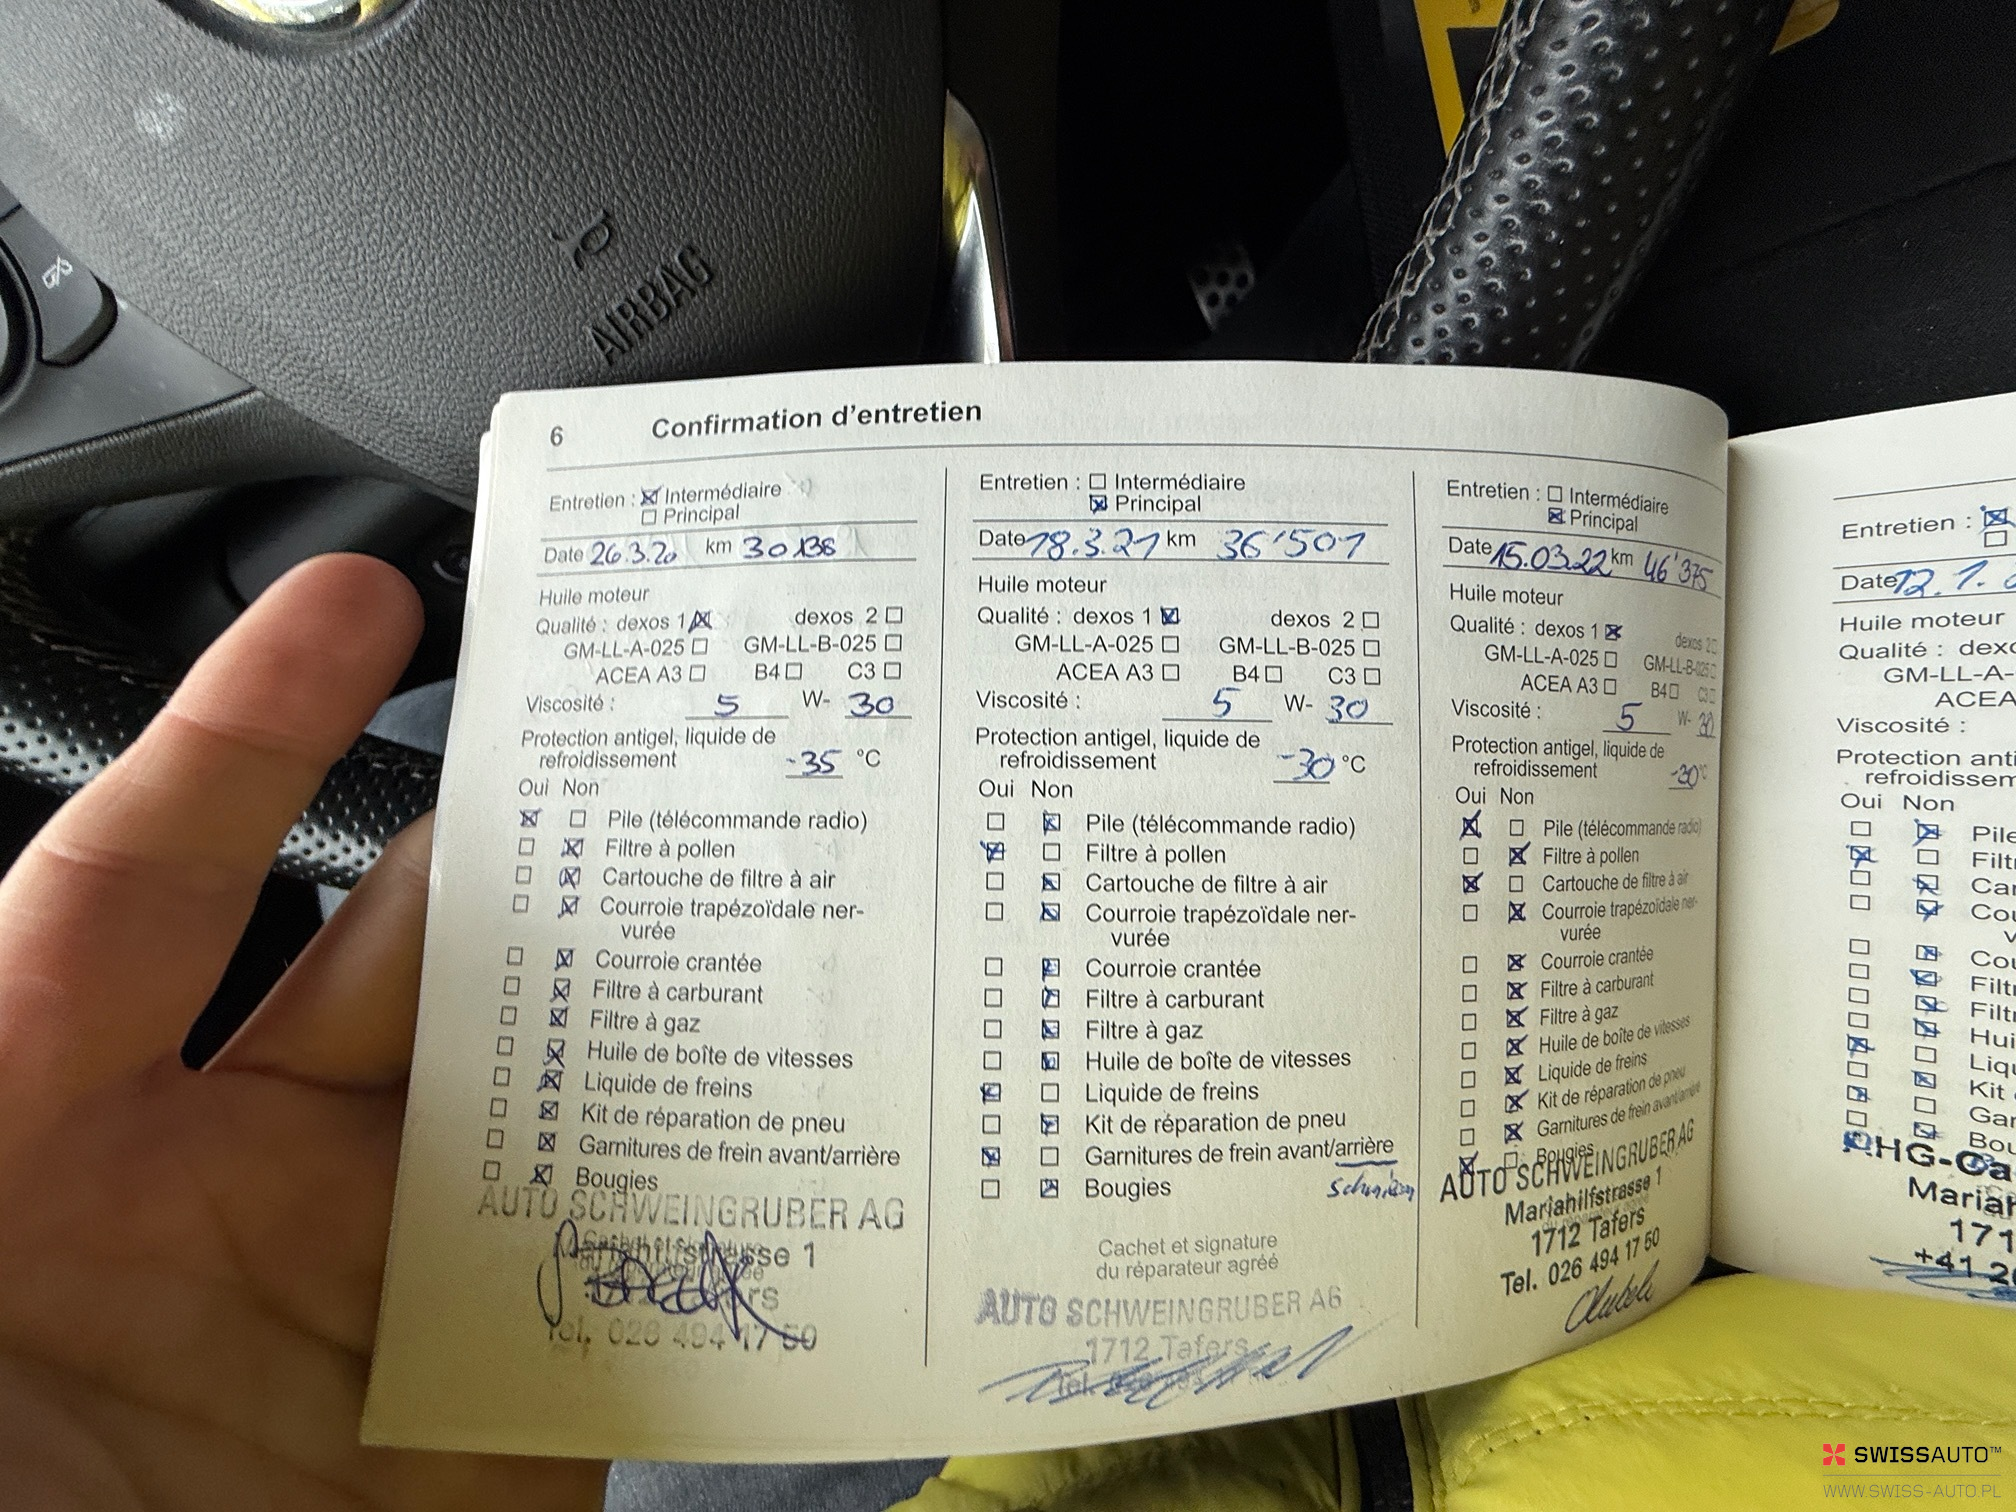 AIRBAG
6 Confirmation d'entretien
Entretien : ☒ Intermédiaire
☐ Principal
Date 26.3.20 km 30138
Huile moteur
Qualité : dexos 1 ☒ dexos 2 ☐
GM-LL-A-025 ☐ GM-LL-B-025 ☐
ACEA A3 ☐ B4 ☐ C3 ☐
Viscosité : 5 W- 30
Protection antigel, liquide de
refroidissement -35 °C
Oui Non
☒ ☐ Pile (télécommande radio)
☐ ☒ Filtre à pollen
☐ ☒ Cartouche de filtre à air
☐ ☒ Courroie trapézoïdale ner-
vurée
☐ ☒ Courroie crantée
☐ ☒ Filtre à carburant
☐ ☒ Filtre à gaz
☐ ☒ Huile de boîte de vitesses
☐ ☒ Liquide de freins
☐ ☒ Kit de réparation de pneu
☐ ☒ Garnitures de frein avant/arrière
☐ ☒ Bougies
AUTO SCHWEINGRUBER AG
Mariahilfstrasse 1
Tel. 026 494 17 50
Entretien : ☐ Intermédiaire
☒ Principal
Date 18.3.21 km 36'501
Huile moteur
Qualité : dexos 1 ☒ dexos 2 ☐
GM-LL-A-025 ☐ GM-LL-B-025 ☐
ACEA A3 ☐ B4 ☐ C3 ☐
Viscosité : 5 W- 30
Protection antigel, liquide de
refroidissement -30 °C
Oui Non
☐ ☒ Pile (télécommande radio)
☒ ☐ Filtre à pollen
☐ ☒ Cartouche de filtre à air
☐ ☒ Courroie trapézoïdale ner-
vurée
☐ ☒ Courroie crantée
☐ ☒ Filtre à carburant
☐ ☒ Filtre à gaz
☐ ☒ Huile de boîte de vitesses
☒ ☐ Liquide de freins
☐ ☒ Kit de réparation de pneu
☒ ☐ Garnitures de frein avant/arrière
☐ ☒ Bougies
Cachet et signature
du réparateur agréé
AUTO SCHWEINGRUBER AG
1712 Tafers
Entretien : ☐ Intermédiaire
☒ Principal
Date 15.03.22 km 46'375
Huile moteur
Qualité : dexos 1 ☒ dexos 2 ☐
GM-LL-A-025 ☐ GM-LL-B-025 ☐
ACEA A3 ☐ B4 ☐ C3 ☐
Viscosité : 5 W- 30
Protection antigel, liquide de
refroidissement -30 °C
Oui Non
☒ ☐ Pile (télécommande radio)
☐ ☒ Filtre à pollen
☒ ☐ Cartouche de filtre à air
☐ ☒ Courroie trapézoïdale ner-
vurée
☐ ☒ Courroie crantée
☐ ☒ Filtre à carburant
☐ ☒ Filtre à gaz
☐ ☒ Huile de boîte de vitesses
☐ ☒ Liquide de freins
☐ ☒ Kit de réparation de pneu
☐ ☒ Garnitures de frein avant/arrière
☒ ☐ Bougies
AUTO SCHWEINGRUBER AG
Mariahilfstrasse 1
1712 Tafers
Tel. 026 494 17 50
Entretien : ☒
☐
Date 12.1.
Huile moteur
Qualité : dexo
GM-LL-A-
ACEA
Viscosité :
Protection anti
refroidissem
Oui Non
☐ ☒ Pile
☒ ☐ Filt
☐ ☒ Ca
☐ ☒ Co
v
☐ ☒ Co
☐ ☒ Filt
☐ ☒ Filt
☐ ☒ Hui
☒ ☐ Liq
☐ ☒ Kit
☒ ☐ Ga
☐ ☒ Bou
HG-Ca
Mariah
171
+41 26
SWISSAUTO™
WWW.SWISS-AUTO.PL